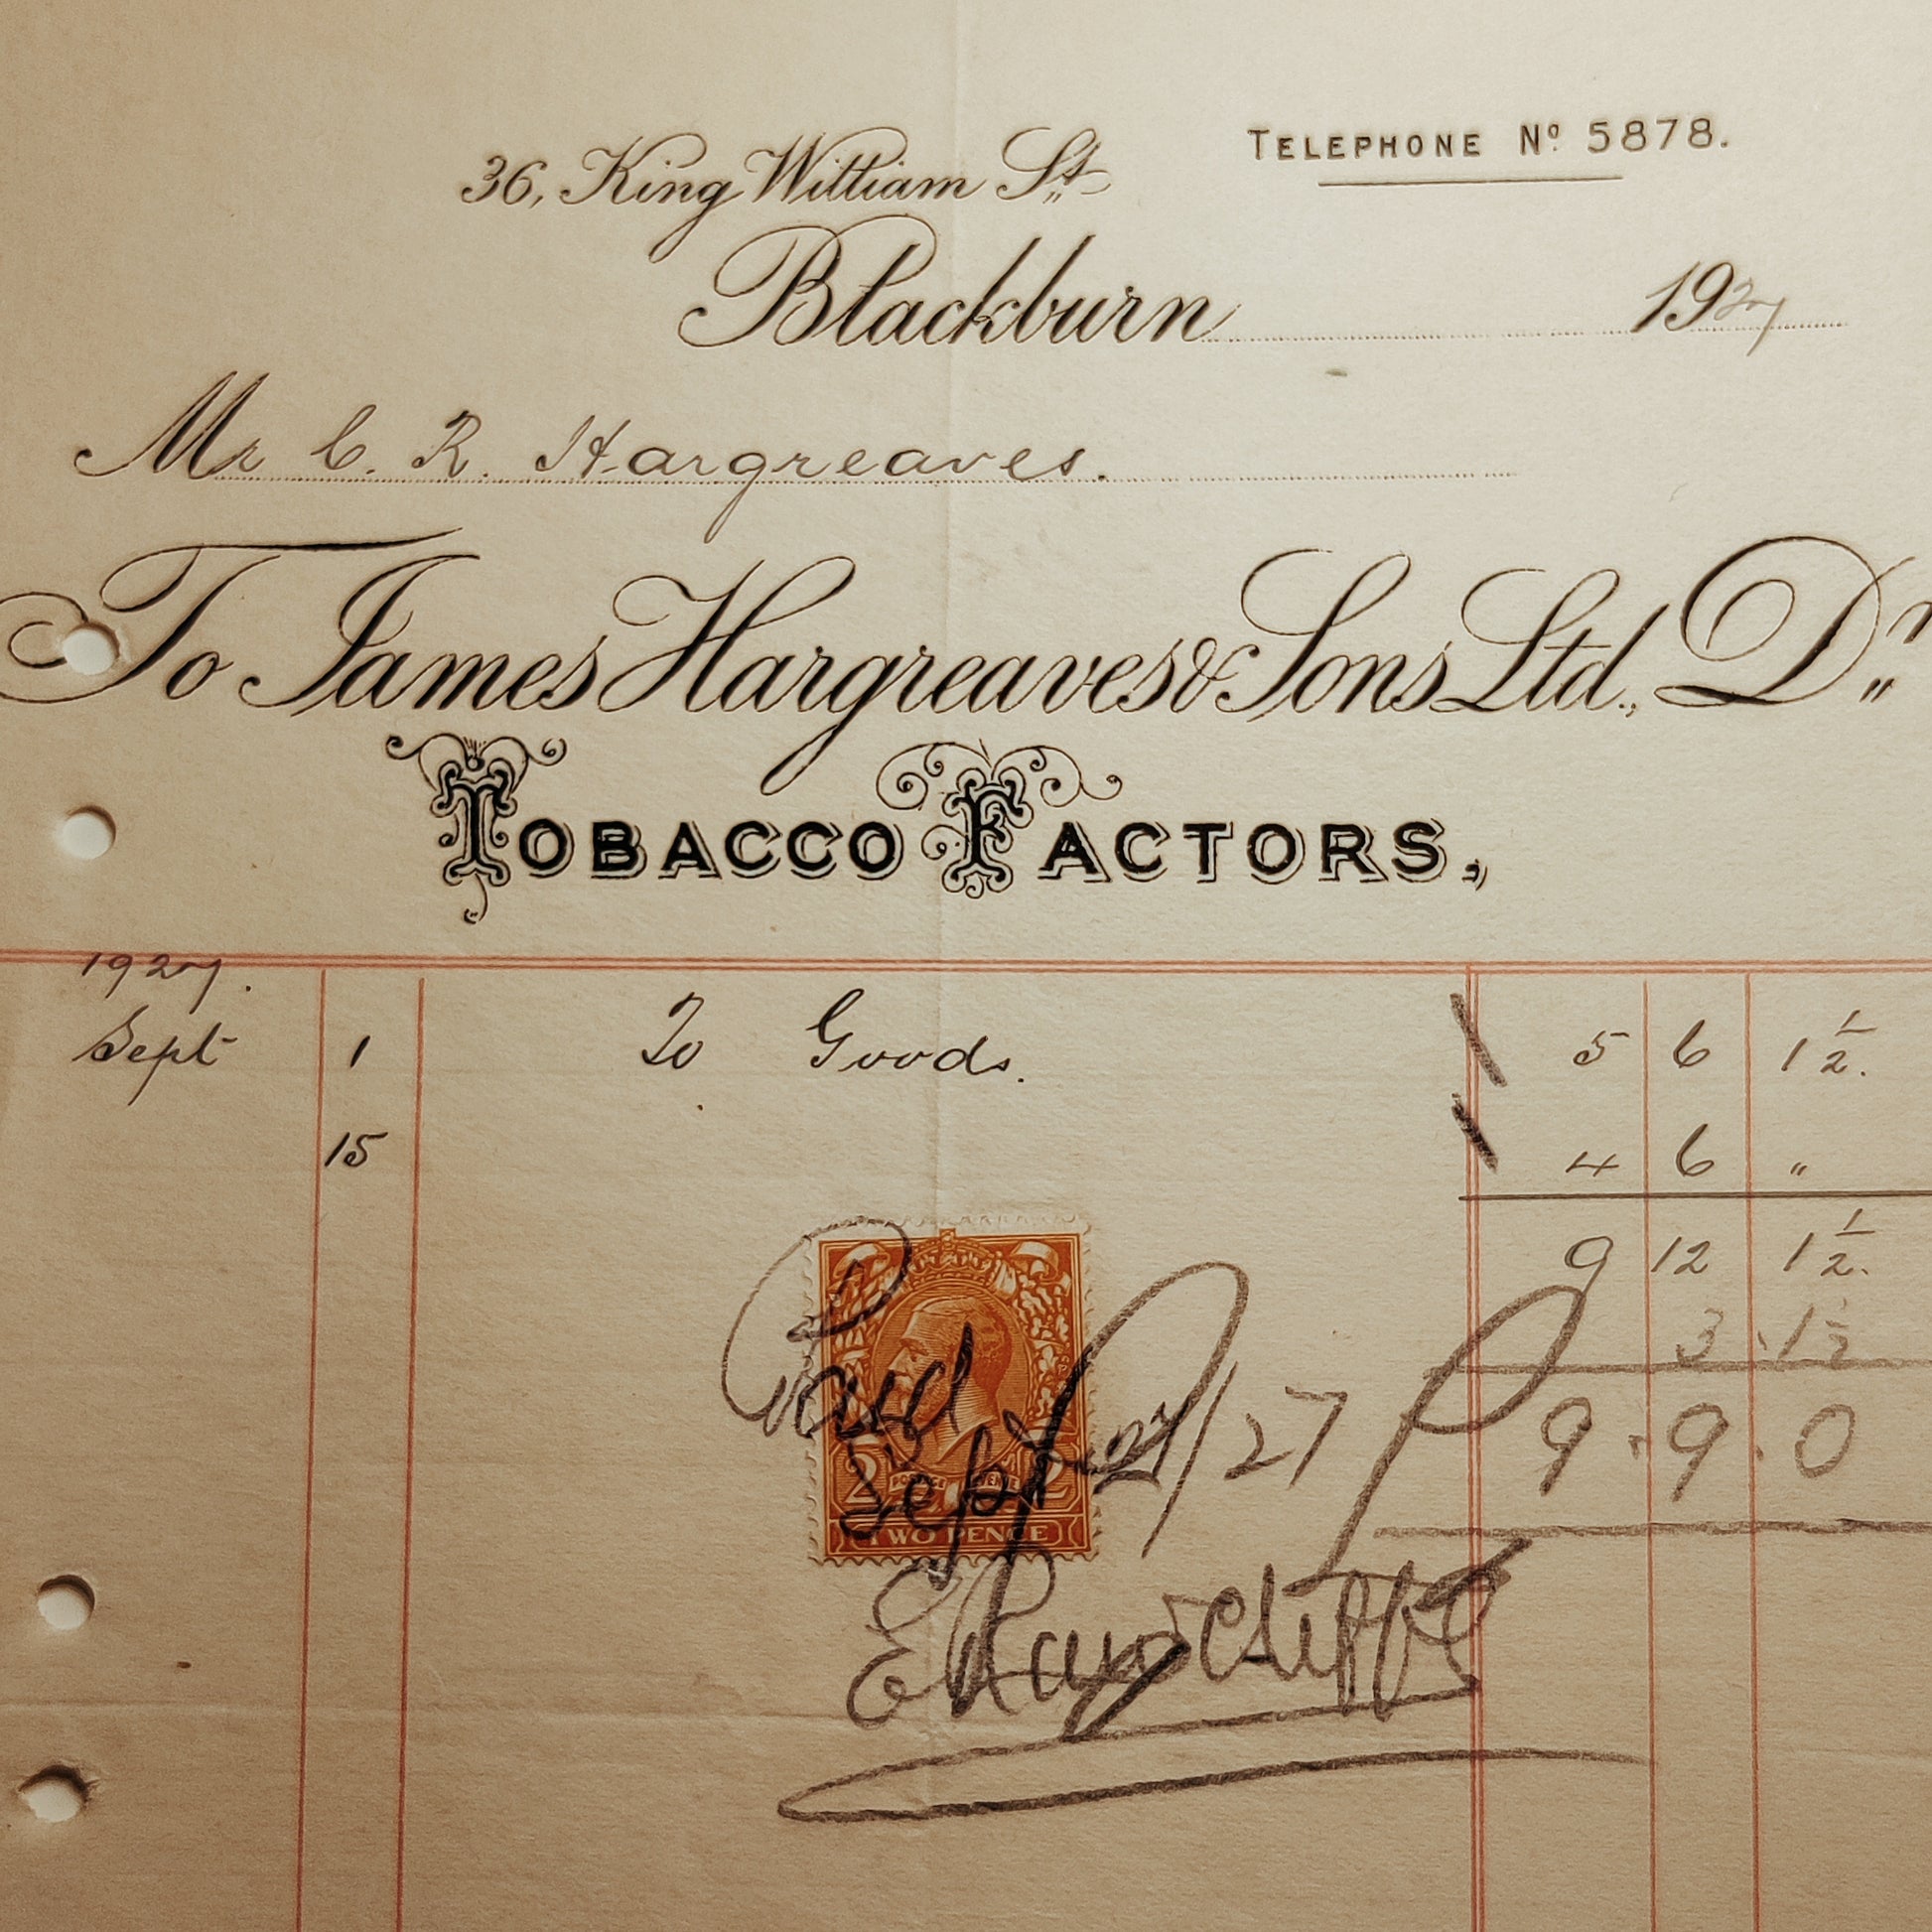 36, King William St.
TELEPHONE No. 5878.
Blackburn 1927
Mr C. R. Hargreaves.
To James Hargreaves & Sons Ltd., Dr.
TOBACCO FACTORS,
1927.
Sept 1 To Goods. 5 6 1 1/2.
15 4 6 "
9 12 1 1/2.
3 . 1 1/2
9 . 9 . 0
Paid
Sept 27/27
POSTAGE REVENUE
2 2
TWO PENCE
E Rawcliffe